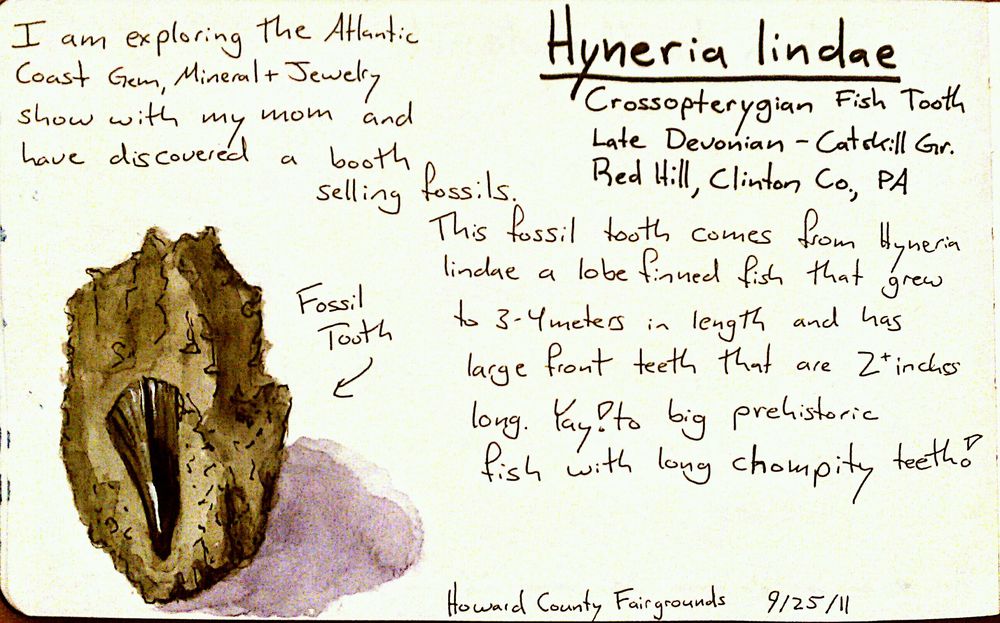 I am exploring the Atlantic
Coast Gem, Mineral + Jewelry
show with my mom and
have discovered a booth
selling fossils.
Hyneria lindae
Crossopterygian Fish Tooth
Late Devonian - Catskill Gr.
Red Hill, Clinton Co., PA
This fossil tooth comes from Hyneria
lindae a lobe finned fish that grew
to 3-4 meters in length and has
large front teeth that are 2+ inches
long. Yay! to big prehistoric
fish with long chompity teeth!
Fossil
Tooth
Howard County Fairgrounds 9/25/11